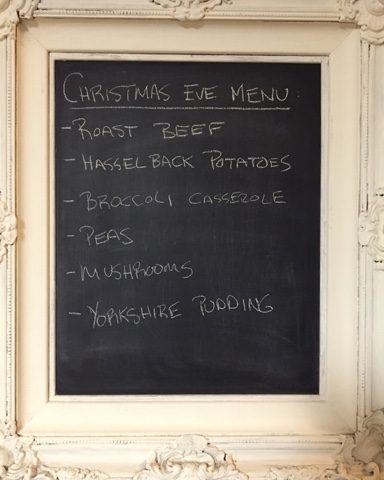 CHRISTMAS EVE MENU:
- ROAST BEEF
- HASSELBACK POTATOES
- BROCCOLI CASSEROLE
- PEAS
- MUSHROOMS
- YORKSHIRE PUDDING